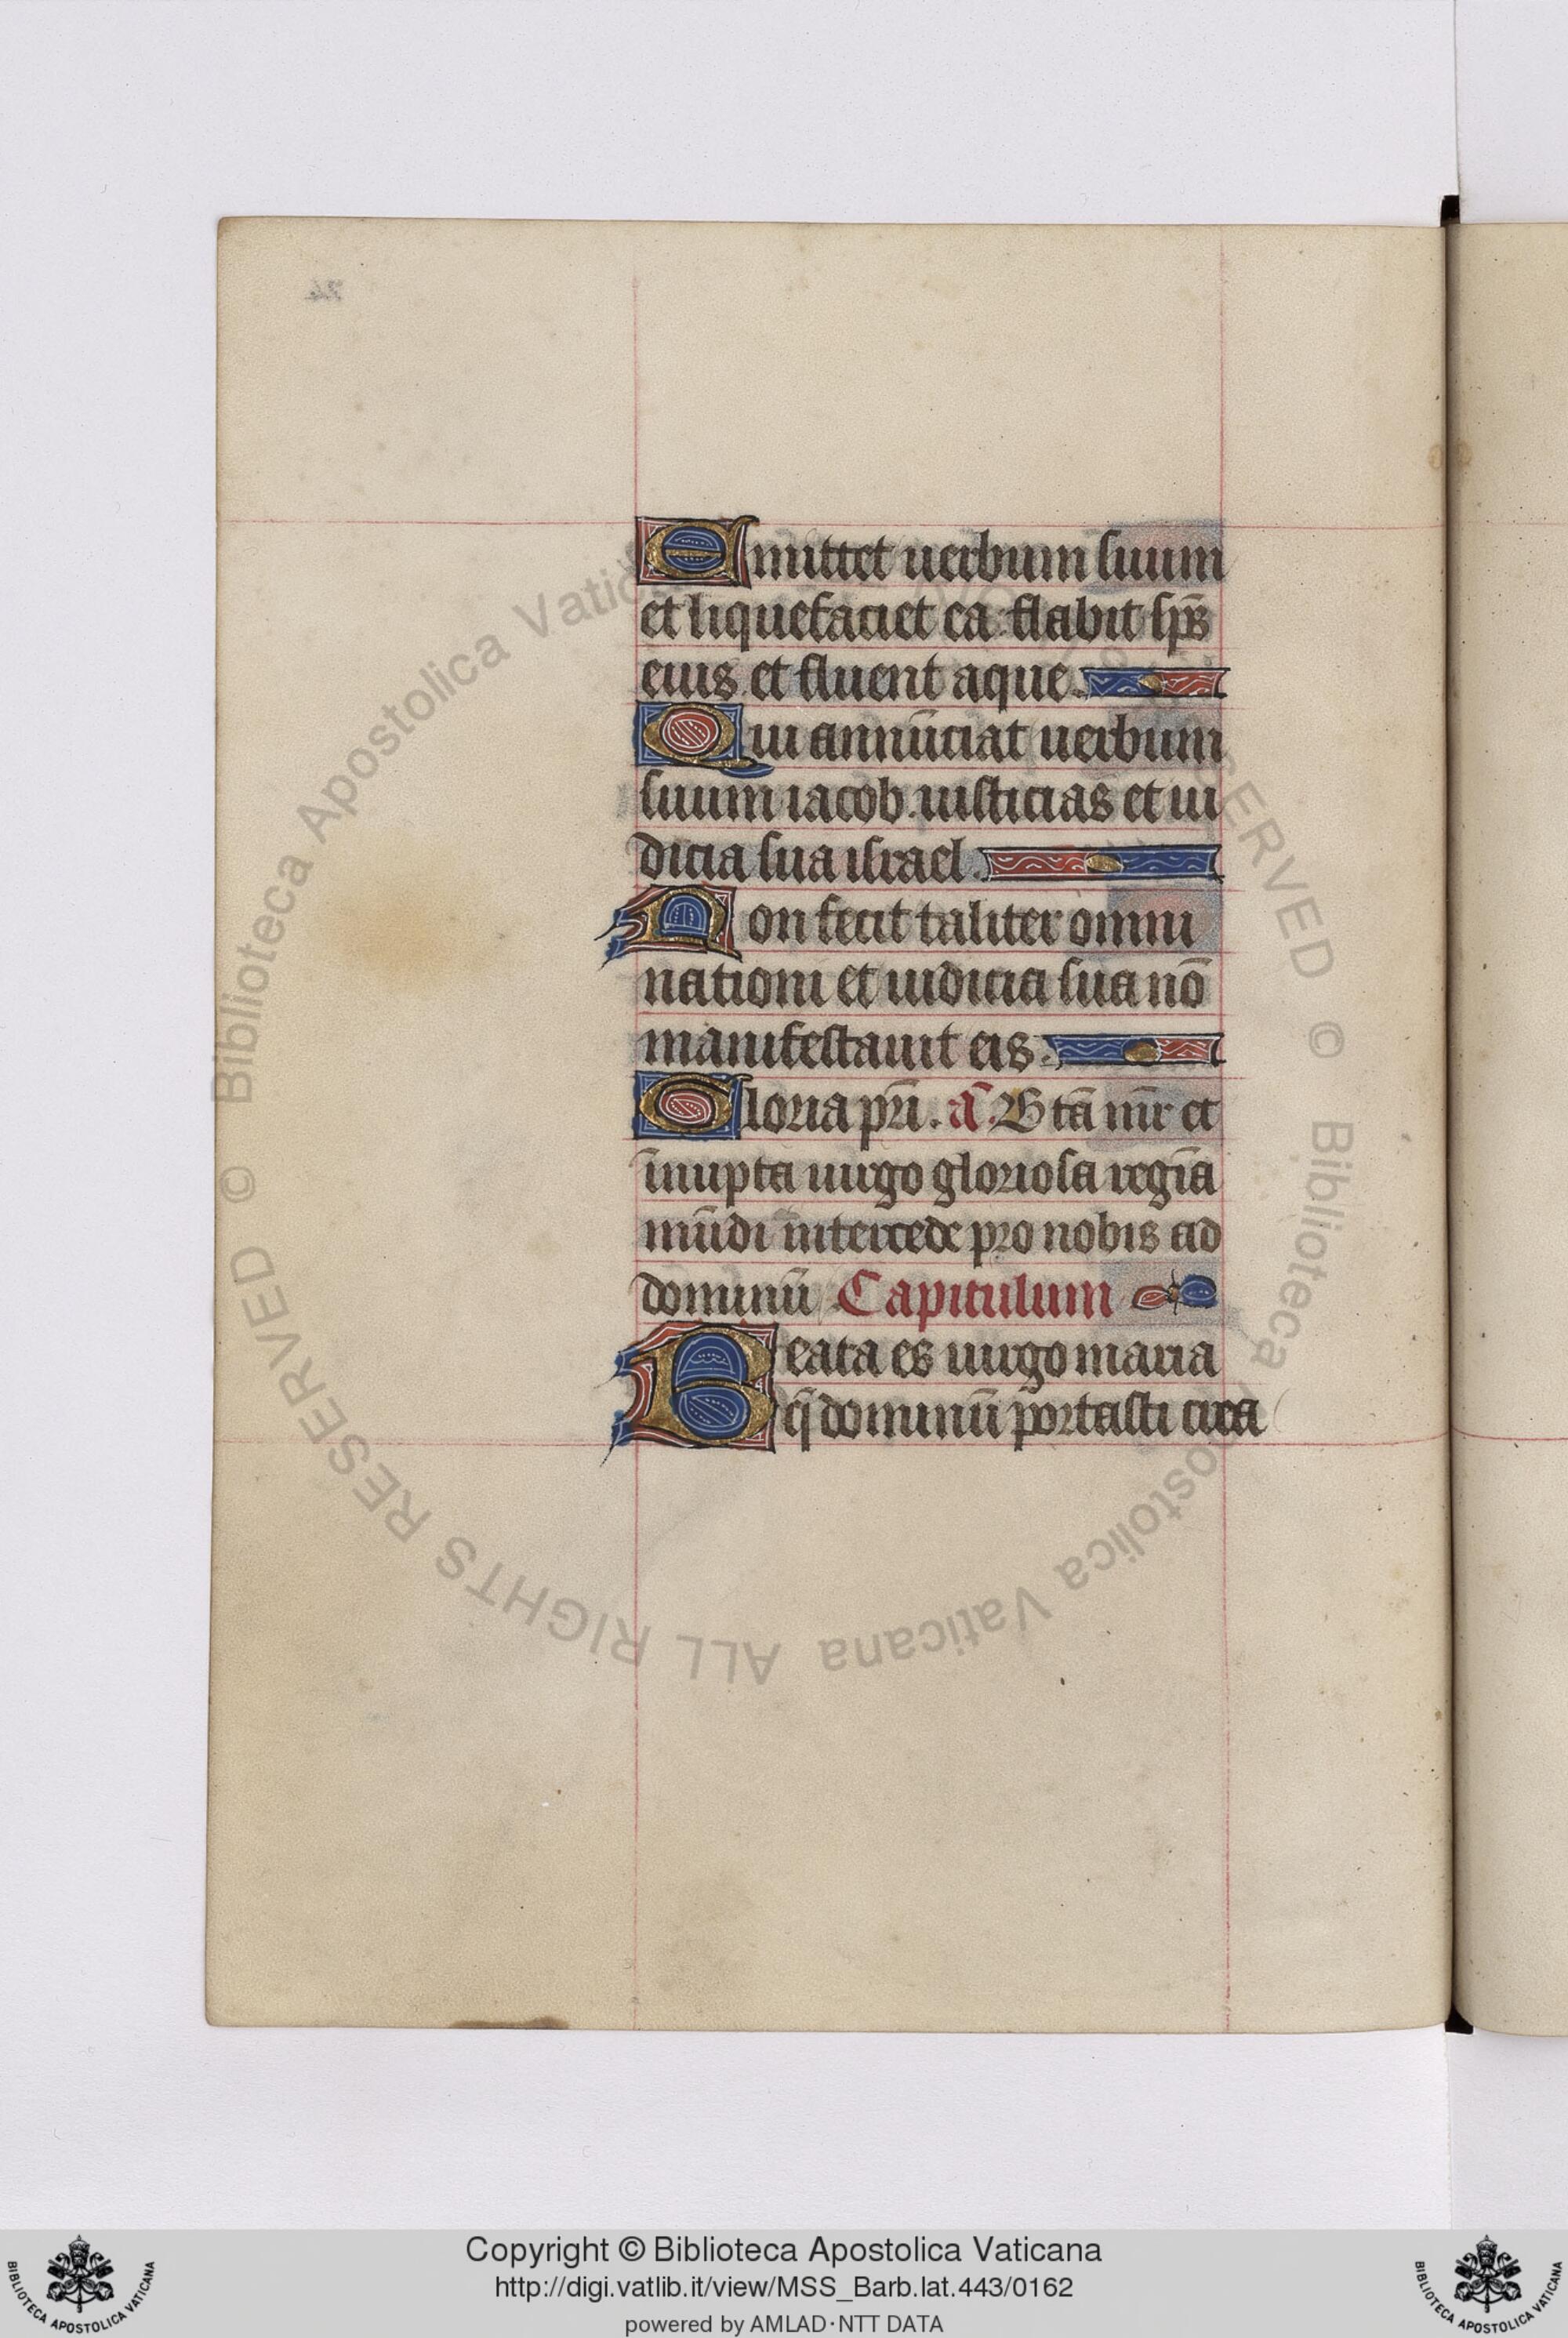 Emittet uerbum suum
et liquefaciet ea. flabit sp̄s
eius. et fluent aque.
Qui annūciat uerbum
suum iacob. iusticias et iu
dicia sua israel.
Non fecit taliter omni
nationi et iudicia sua nō
manifestauit eis.
Gloria pr̄i. a͞. Btā mr̄ et
īnupta uirgo gloriosa regīa
mūdi intercede pro nobis ad
dominū Capitulum
Beata es uirgo maria
q̄ dominū portasti crea
Copyright © Biblioteca Apostolica Vaticana
http://digi.vatlib.it/view/MSS_Barb.lat.443/0162
powered by AMLAD·NTT DATA
BIBLIOTECA APOSTOLICA VATICANA
BIBLIOTECA APOSTOLICA VATICANA
© Biblioteca Apostolica Vaticana ALL RIGHTS RESERVED
© Biblioteca Apostolica Vaticana ALL RIGHTS RESERVED